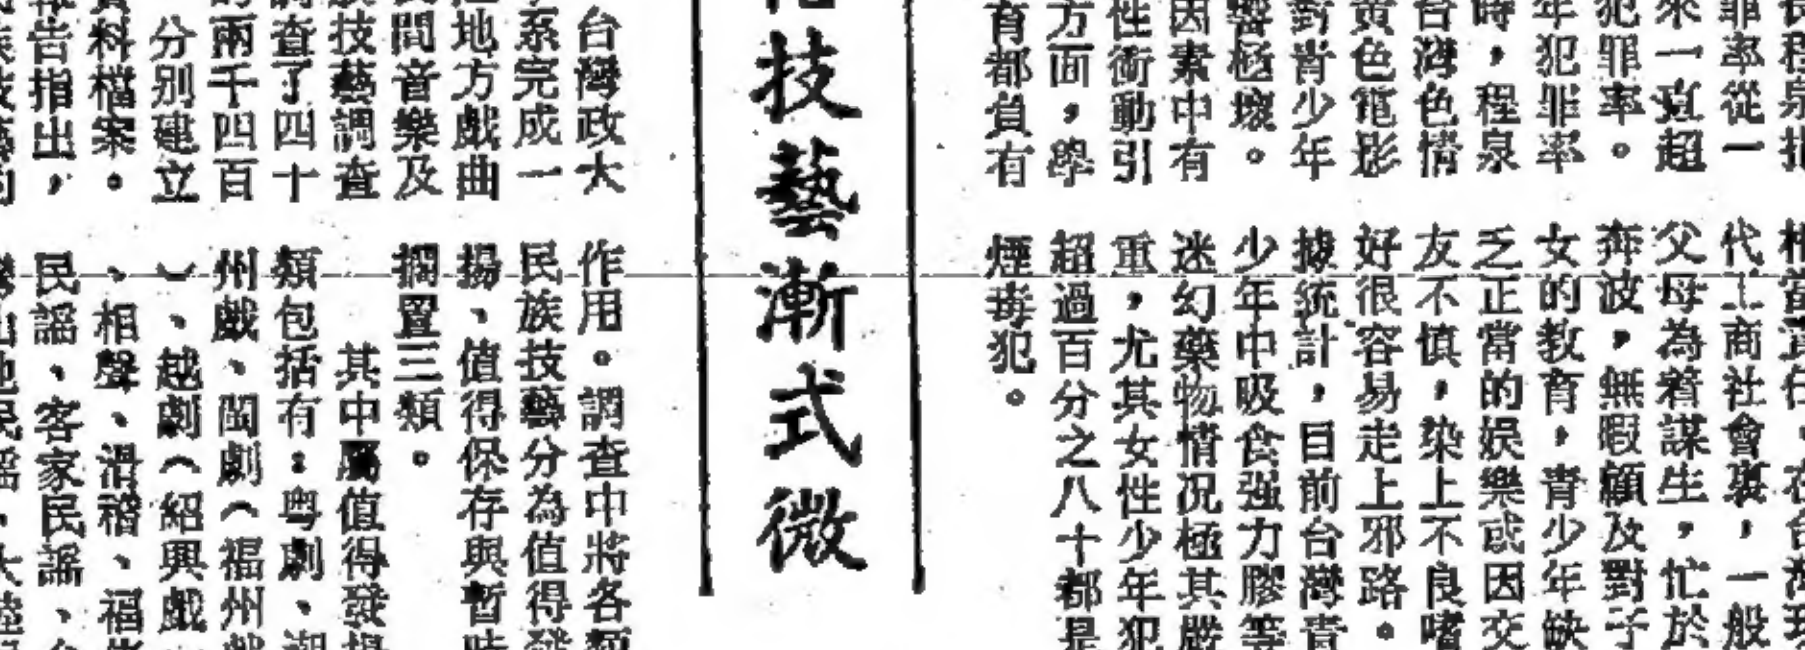 長程泉指
罪率從一
來一直超
犯罪率。
年犯罪率
時，程泉
台灣色情
黃色電影
對青少年
響極壞。
因素中有
性衝動引
方面，學
育都負有
相當責任，在台灣現
代工商社會裏，一般
父母為着謀生，忙於
奔波，無暇顧及對子
女的教育，青少年缺
乏正當的娛樂或因交
友不慎，染上不良嗜
好很容易走上邪路。
據統計，目前台灣青
少年中吸食强力膠等
迷幻藥物情况極其嚴
重，尤其女性少年犯
超過百分之八十都是
煙毒犯。
技藝漸式微
台灣政大
系完成一
地方戲曲
間音樂及
技藝調查
調查了四十
兩千四百
分别建立
資料檔案。
報告指出，
作用。調查中將各類
民族技藝分為值得發
揚、值得保存與暫時
擱置三類。
其中屬值得發揚
類包括有：粤劇、潮
州戲、閩劇（福州戲
）、越劇（紹興戲
、相聲、滑稽、福
民謠、客家民謠、
山地民謠、大陸